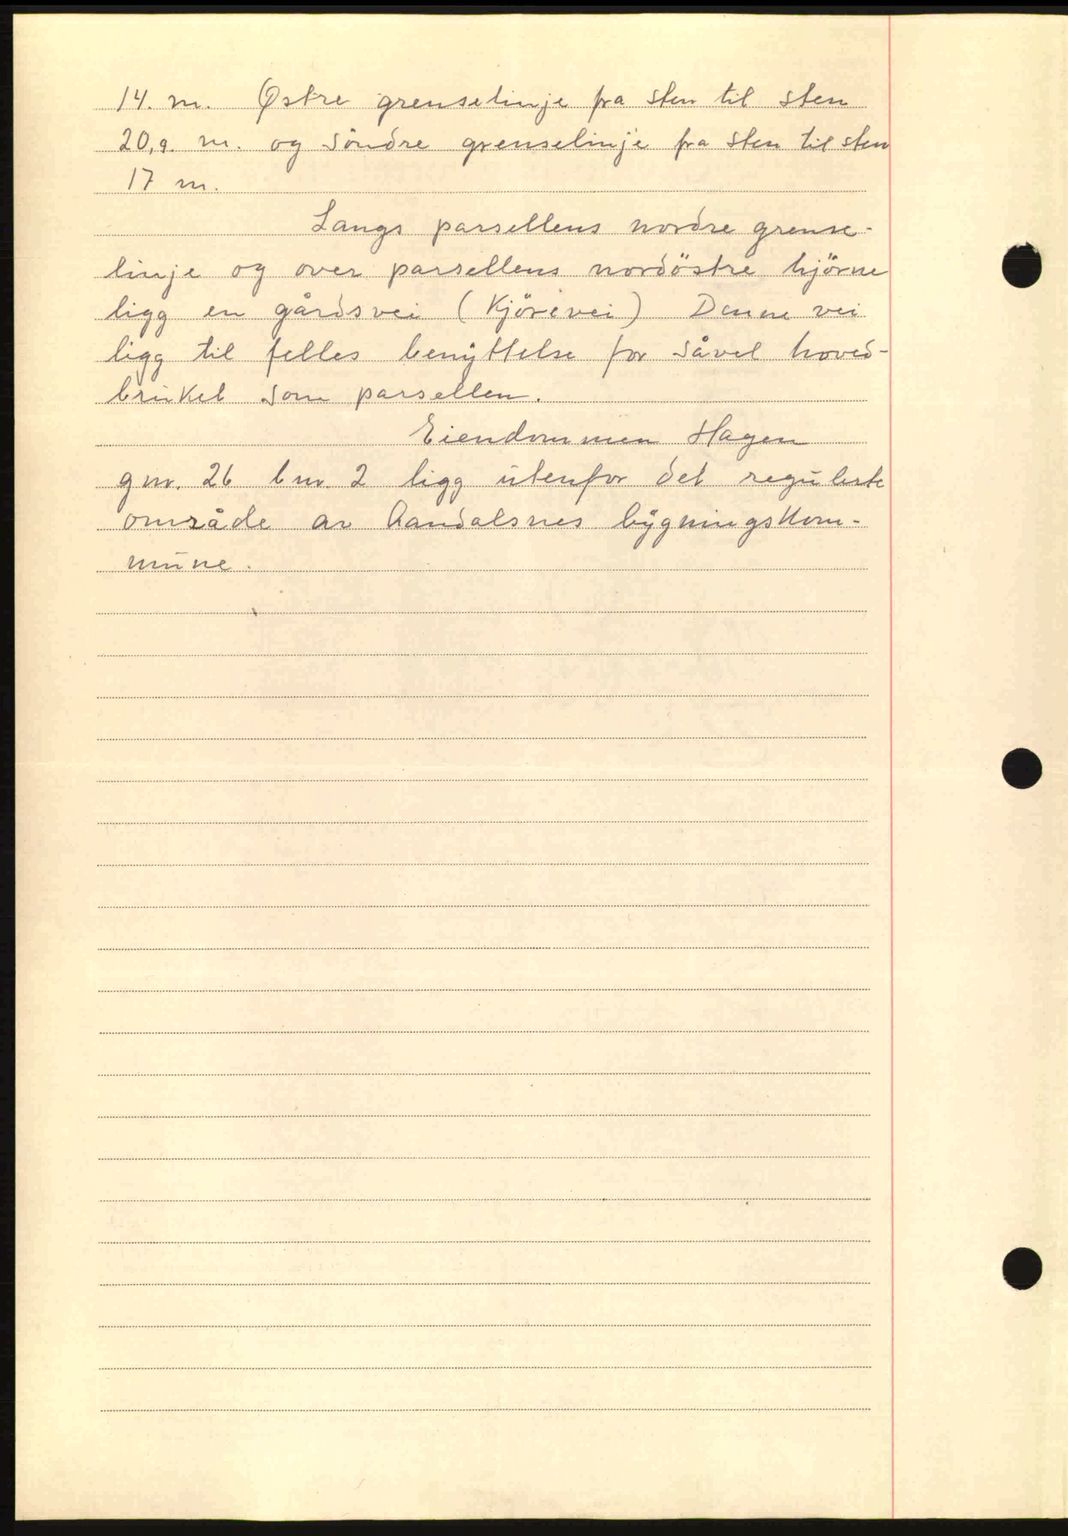 14. m. Østre grenselinje fra sten til sten
20,9. m. og söndre grenselinje fra sten til sten
17 m.
Langs parsellens nordre grense-
linje og over parsellens nordöstre hjörne
ligg en gårdsvei (Kjörevei) Denne vei
ligg til felles benyttelse for såvel hoved-
bruket som parsellen.
Eiendommen Hagen
gnr. 26 bnr. 2 ligg utenfor det regulerte
område av Aandalsnes bygningskom-
mune.